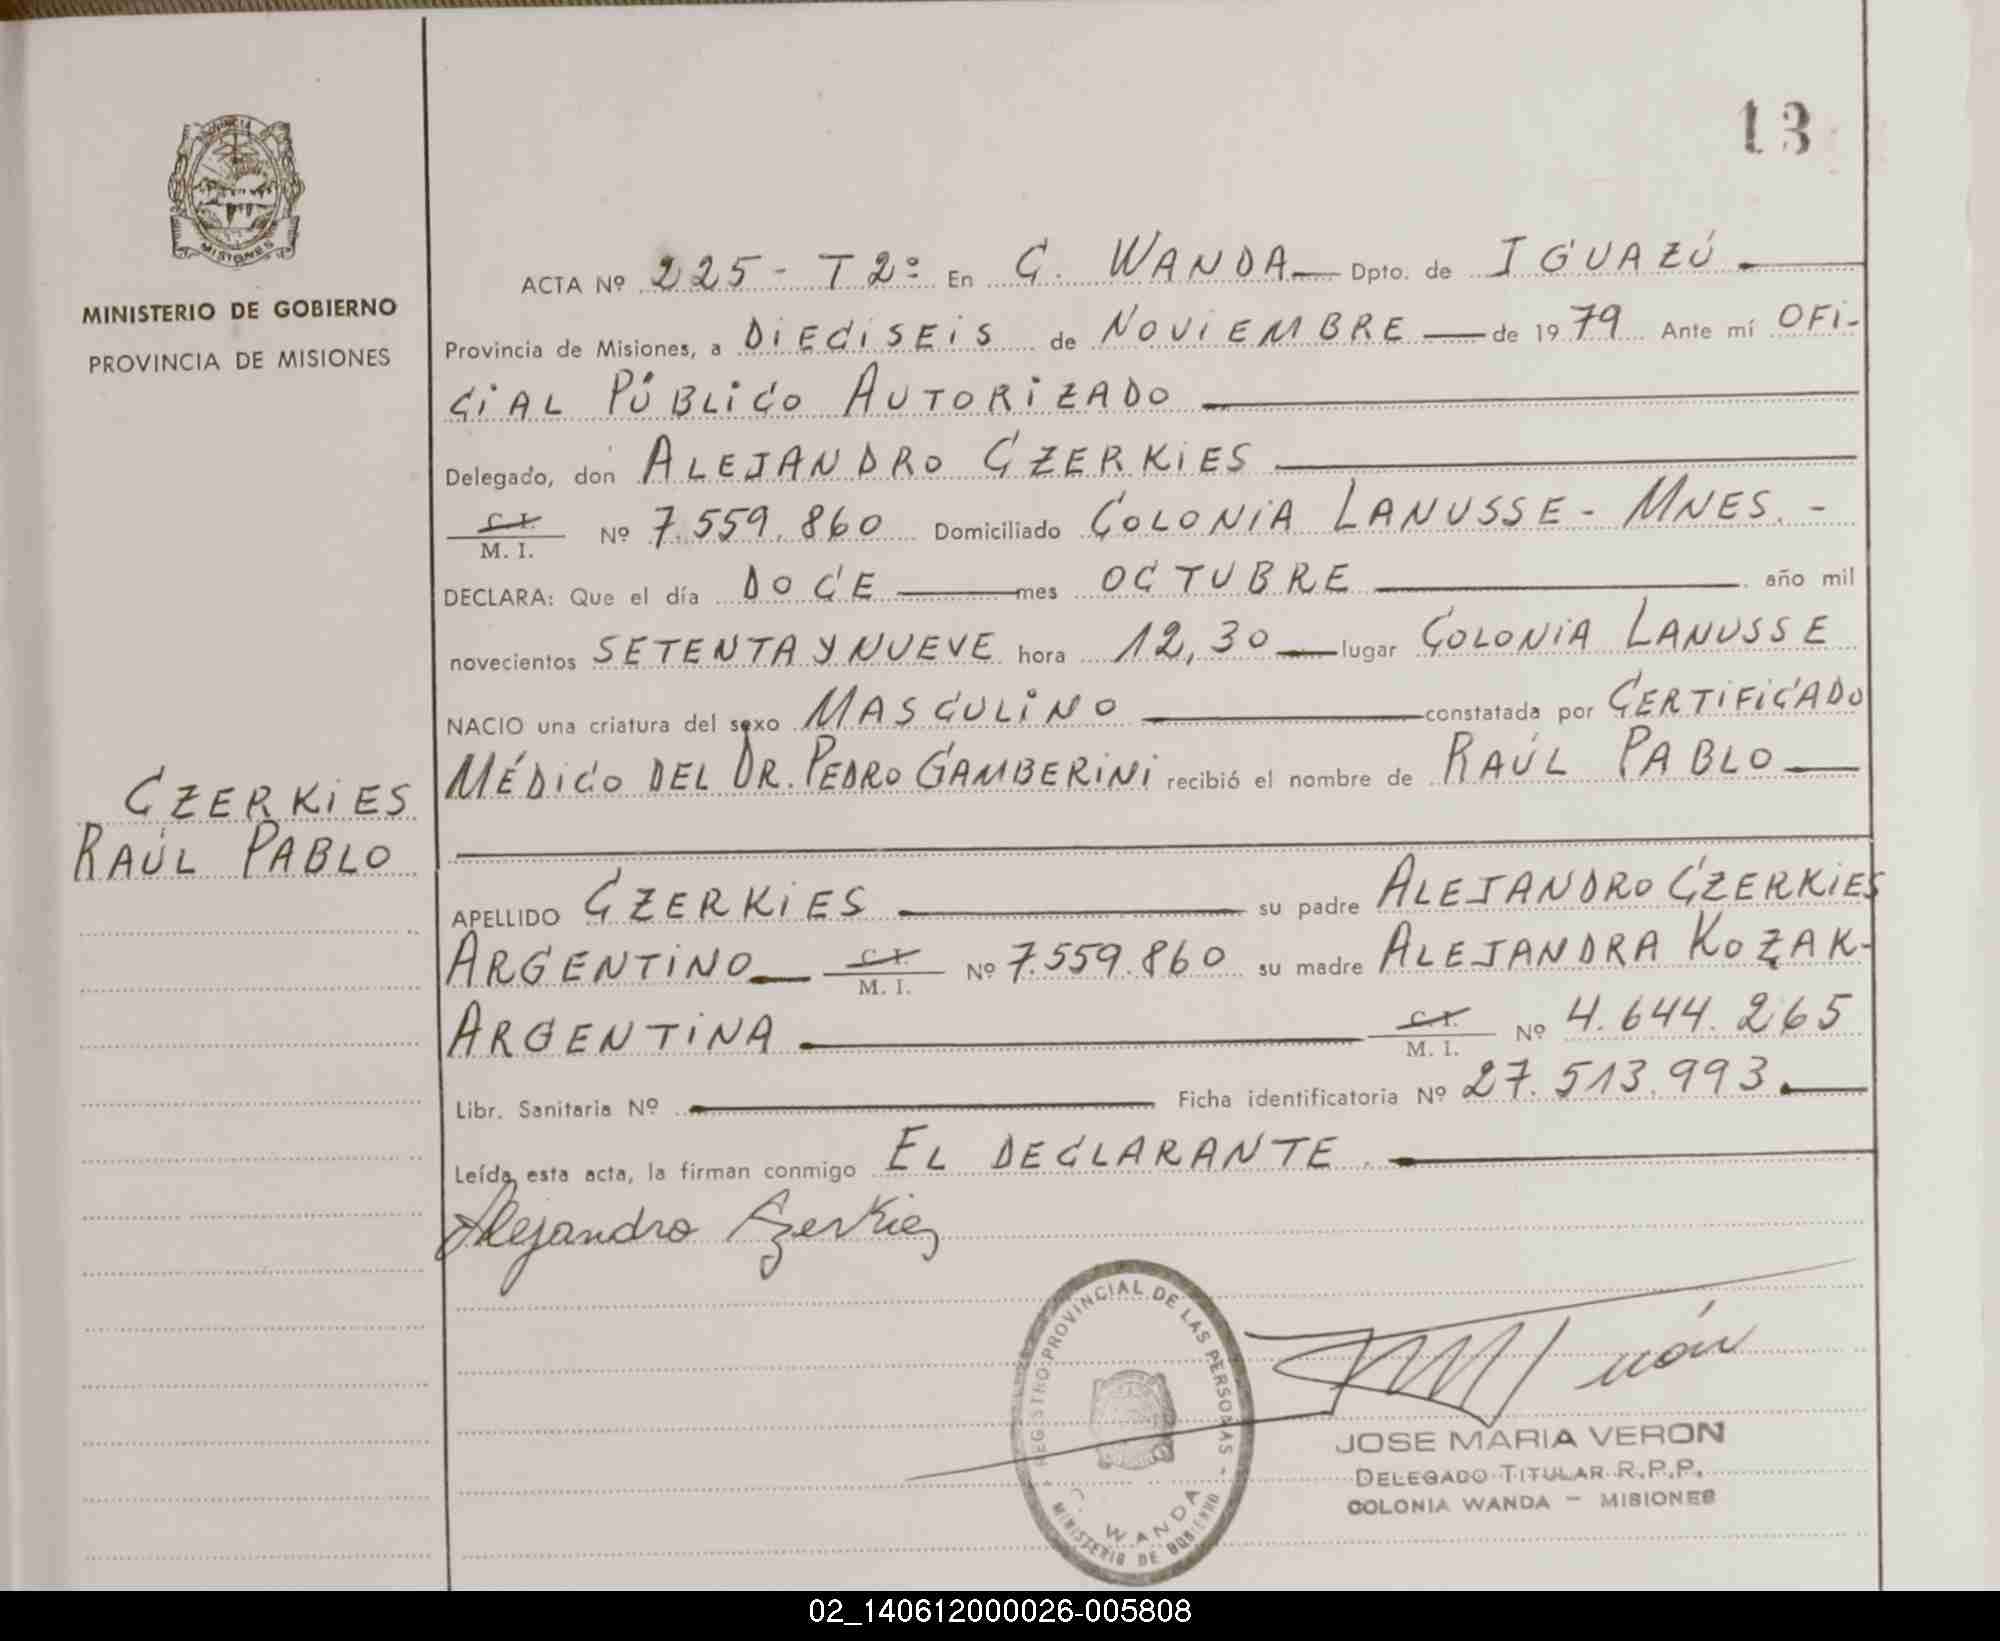 13
PROVINCIA
MISIONES
MINISTERIO DE GOBIERNO
PROVINCIA DE MISIONES
ACTA Nº 225 - T2º En C. WANDA Dpto. de IGUAZÚ
Provincia de Misiones, a DIECISEIS de NOVIEMBRE de 1979 Ante mí OFI-
CIAL PÚBLICO AUTORIZADO
Delegado, don ALEJANDRO CZERKIES
C. I.
M. I. Nº 7.559.860 Domiciliado COLONIA LANUSSE - MNES. -
DECLARA: Que el día DOCE mes OCTUBRE año mil
novecientos SETENTA Y NUEVE hora 12,30 lugar COLONIA LANUSSE
NACIO una criatura del sexo MASCULINO constatada por CERTIFICADO
MÉDICO DEL DR. PEDRO GAMBERINI recibió el nombre de RAÚL PABLO
CZERKIES
RAÚL PABLO
APELLIDO CZERKIES su padre ALEJANDRO CZERKIES
ARGENTINO C. I. M. I. Nº 7.559.860 su madre ALEJANDRA KOZAK-
ARGENTINA C. I. M. I. Nº 4.644.265
Libr. Sanitaria Nº Ficha identificatoria Nº 27.513.993.
Leída esta acta, la firman conmigo EL DECLARANTE.
Alejandro Czerkies
REGISTRO PROVINCIAL DE LAS PERSONAS -
C. WANDA
MINISTERIO DE GOBIERNO
JOSE MARIA VERON
DELEGADO TITULAR R.P.P.
COLONIA WANDA - MISIONES
02_140612000026-005808